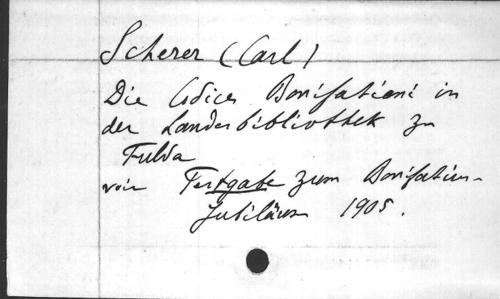 Scherer (Carl)
Die Codices Bonifatiani in
der Landesbibliothek zu
Fulda
voir Festgabe zum Bonifatius-
Jubiläum 1905.